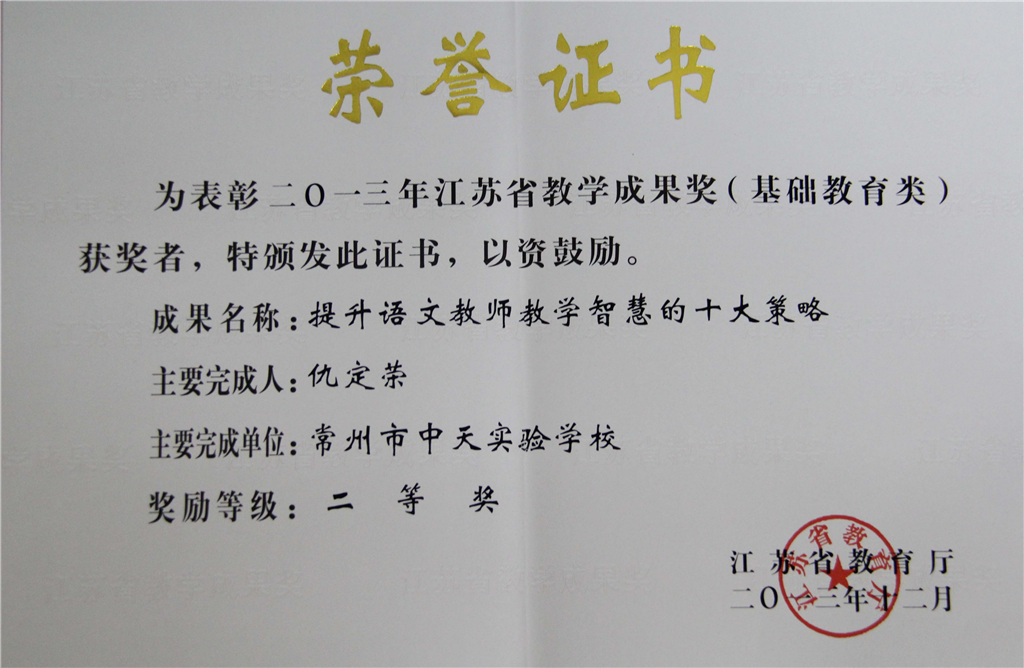 荣誉证书
为表彰二〇一三年江苏省教学成果奖（基础教育类）
获奖者，特颁发此证书，以资鼓励。
成果名称：提升语文教师教学智慧的十大策略
主要完成人：仇定荣
主要完成单位：常州市中天实验学校
奖励等级：二等奖
江苏省教育厅
二〇一三年十二月
江苏省教育厅